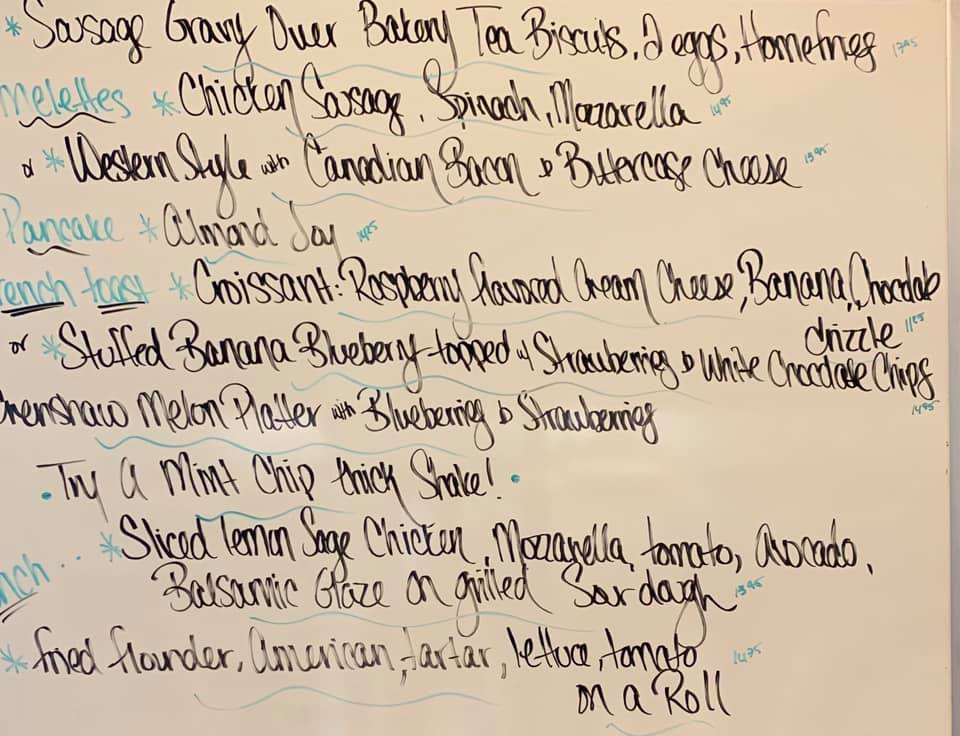 * Sausage Gravy Over Bakery Tea Biscuits, 2 eggs, Homefries 1795
melettes * Chicken Sausage, Spinach, Mozzarella 1495
or * Western Style with Canadian Bacon & Buttercase Cheese 1395
Pancake * Almond Joy 1425
rench toast * Croissant: Raspberry flavored Cream Cheese, Banana, Chocolate
drizzle 1125
or * Stuffed Banana Blueberry topped w/ Strawberries & White Chocolate Chips
1495
Crenshaw Melon Platter with Blueberries & Strawberries
• Try A Mint Chip thick Shake! •
nch... * Sliced lemon Sage Chicken, Mozzarella, tomato, Avocado,
Balsamic Glaze on grilled Sourdough 1395
* fried flounder, American, tartar, lettuce, tomato 1475
on a Roll